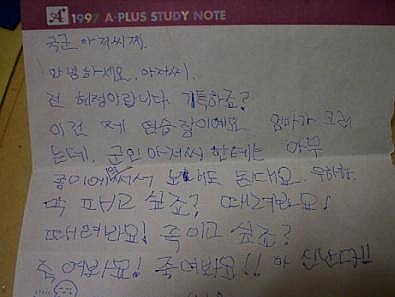 A+ 1997 A·PLUS STUDY NOTE
국군 아저씨께.
안녕하세요. 아저씨.
전 혜정이랍니다. 기특하죠?
이건 제 연습장이예요. 엄마가 그러
는데, 군인 아저씨 한테는 아무
종이에 써서 보내도 된대요. 우하하
막 패고 싶죠? 때려봐요!
때려봐요! 죽이고 싶죠?
죽여봐요! 죽여봐요!! 아 신난다!!